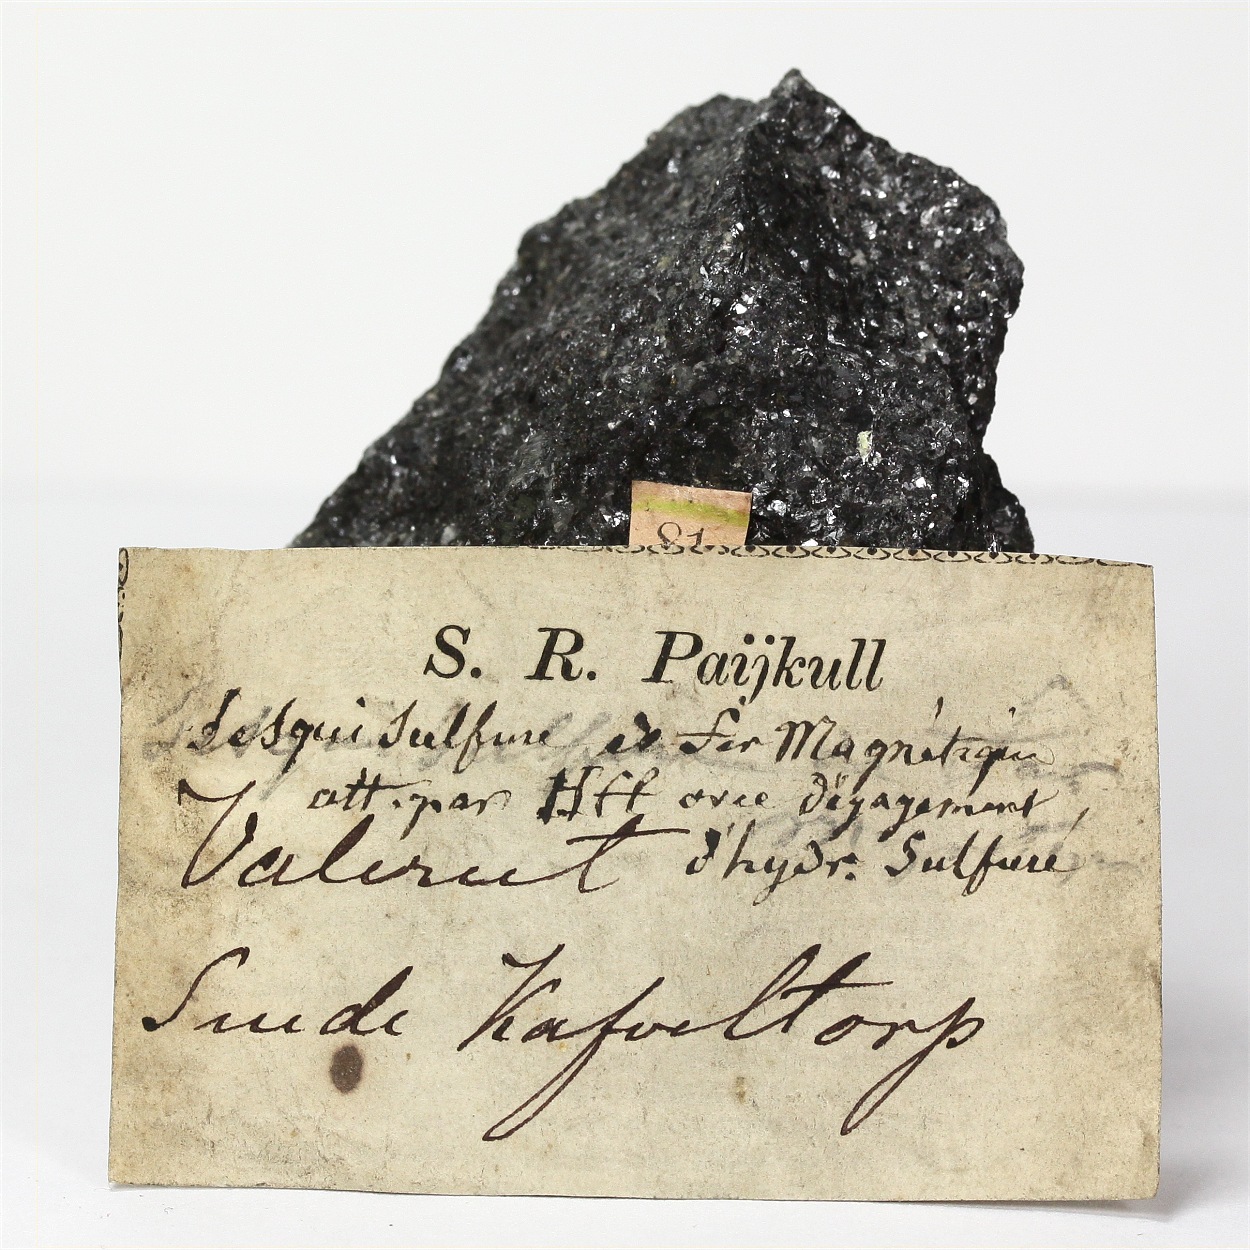 81.
S. R. Paijkull
Sesquisulfure de fer Magnétique
att. par Hcl avec dégagement
Valerut d'hydr. Sulfuré
Suede Kafveltorp